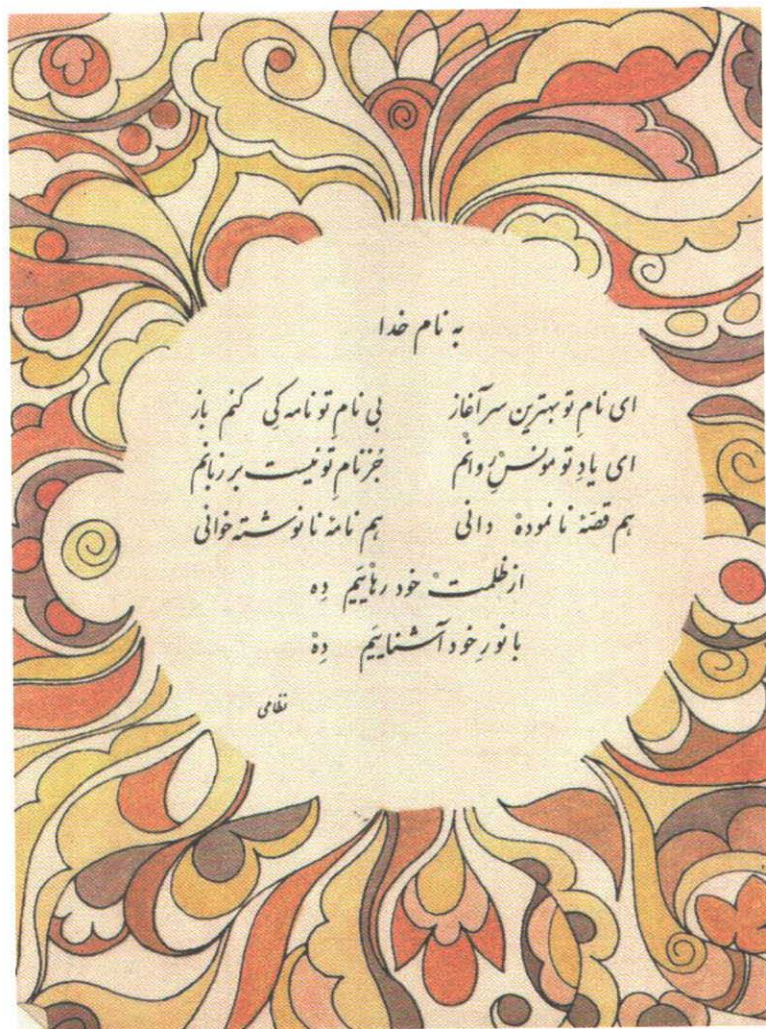 به نام خدا
ای نامِ تو بهترین سرآغاز بی نامِ تو نامه کی کنم باز
ای یادِ تو مونسِ روانم جُز نامِ تو نیست بر زبانم
هم قصّهٔ نانموده دانی هم نامهٔ نانوشته خوانی
از ظلمتْ خود رهاییَم دِه
با نورِ خود آشناییَم دِهْ
نظامی